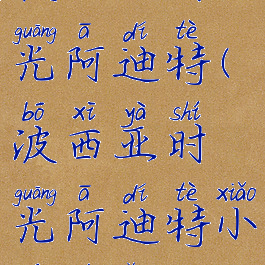 guāng ā dí tè
光阿迪特(
bō xī yà shí
波西亚时
guāng ā dí tè xiǎo
光阿迪特小